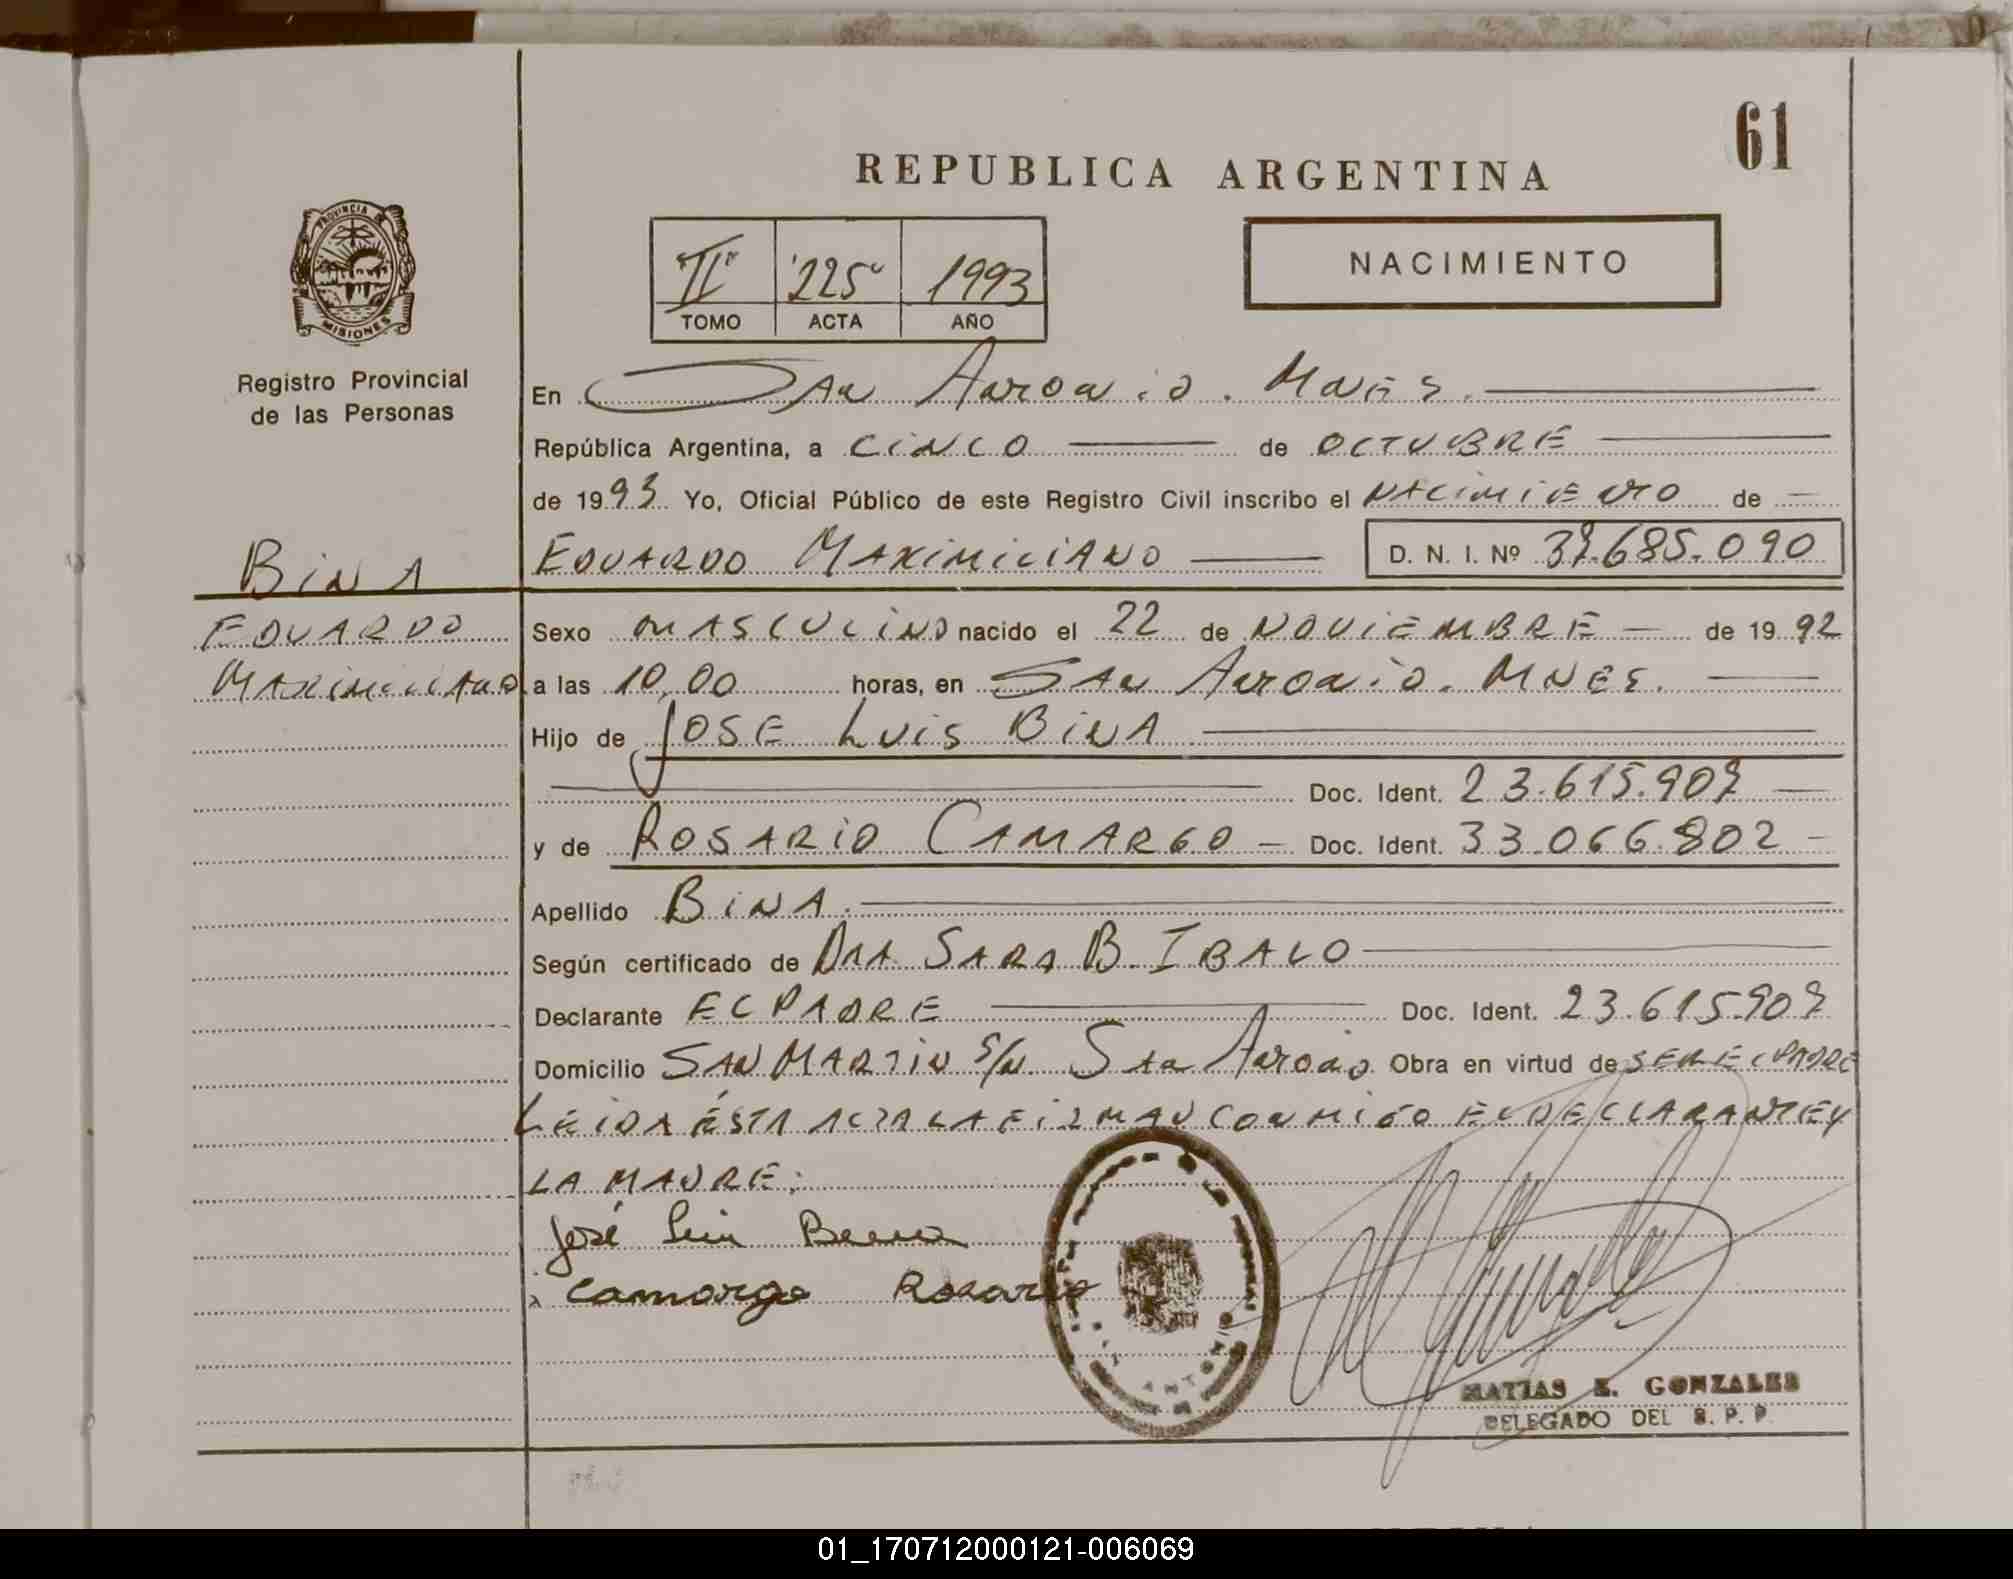 61
REPUBLICA ARGENTINA
PROVINCIA DE
MISIONES
"II" "225" 1993
TOMO ACTA AÑO
NACIMIENTO
Registro Provincial
de las Personas
En San Antonio. Mnes.
República Argentina, a CINCO de OCTUBRE
de 1993 Yo, Oficial Público de este Registro Civil inscribo el NACIMIENTO de
BINA
EDUARDO MAXIMILIANO D. N. I. Nº 37.685.090
EDUARDO
MAXIMILIANO
Sexo MASCULINO nacido el 22 de NOVIEMBRE de 1992
a las 10,00 horas, en San Antonio. MNES.
Hijo de JOSE LUIS BINA
Doc. Ident. 23.615.907
y de ROSARIO CAMARGO Doc. Ident. 33.066.802
Apellido BINA.
Según certificado de DRA SARA B. IBALO
Declarante EL PADRE Doc. Ident. 23.615.907
Domicilio SAN MARTIN S/N San Antonio Obra en virtud de SER EL PADRE
LEIDA ÉSTA ACTA LA FIRMAN CONMIGO EL DECLARANTE Y
LA MADRE:
José Luis Bina
Camargo Rosario
MATIAS E. GONZALES
DELEGADO DEL R. P. P.
01_170712000121-006069